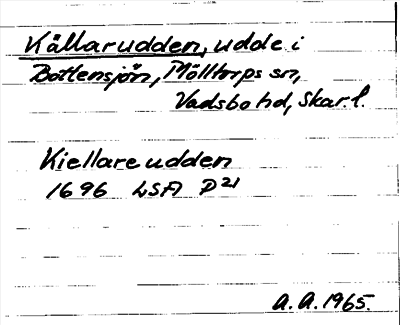 Källarudden, udde i
Bottensjön, Mölltorps sn,
Vadsbo hd, Skar. l.
Kiellareudden
1696 LSA P21
A. A. 1965.